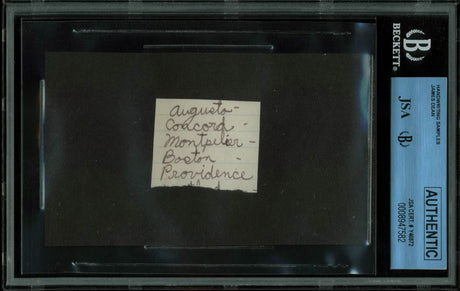 Augusta -
Concord -
Montpelier -
Boston -
Providence
BECKETT®
B
HANDWRITING SAMPLES
JAMES DEAN
JSA
B
JSA CERT. # Y46872
0008947582
AUTHENTIC